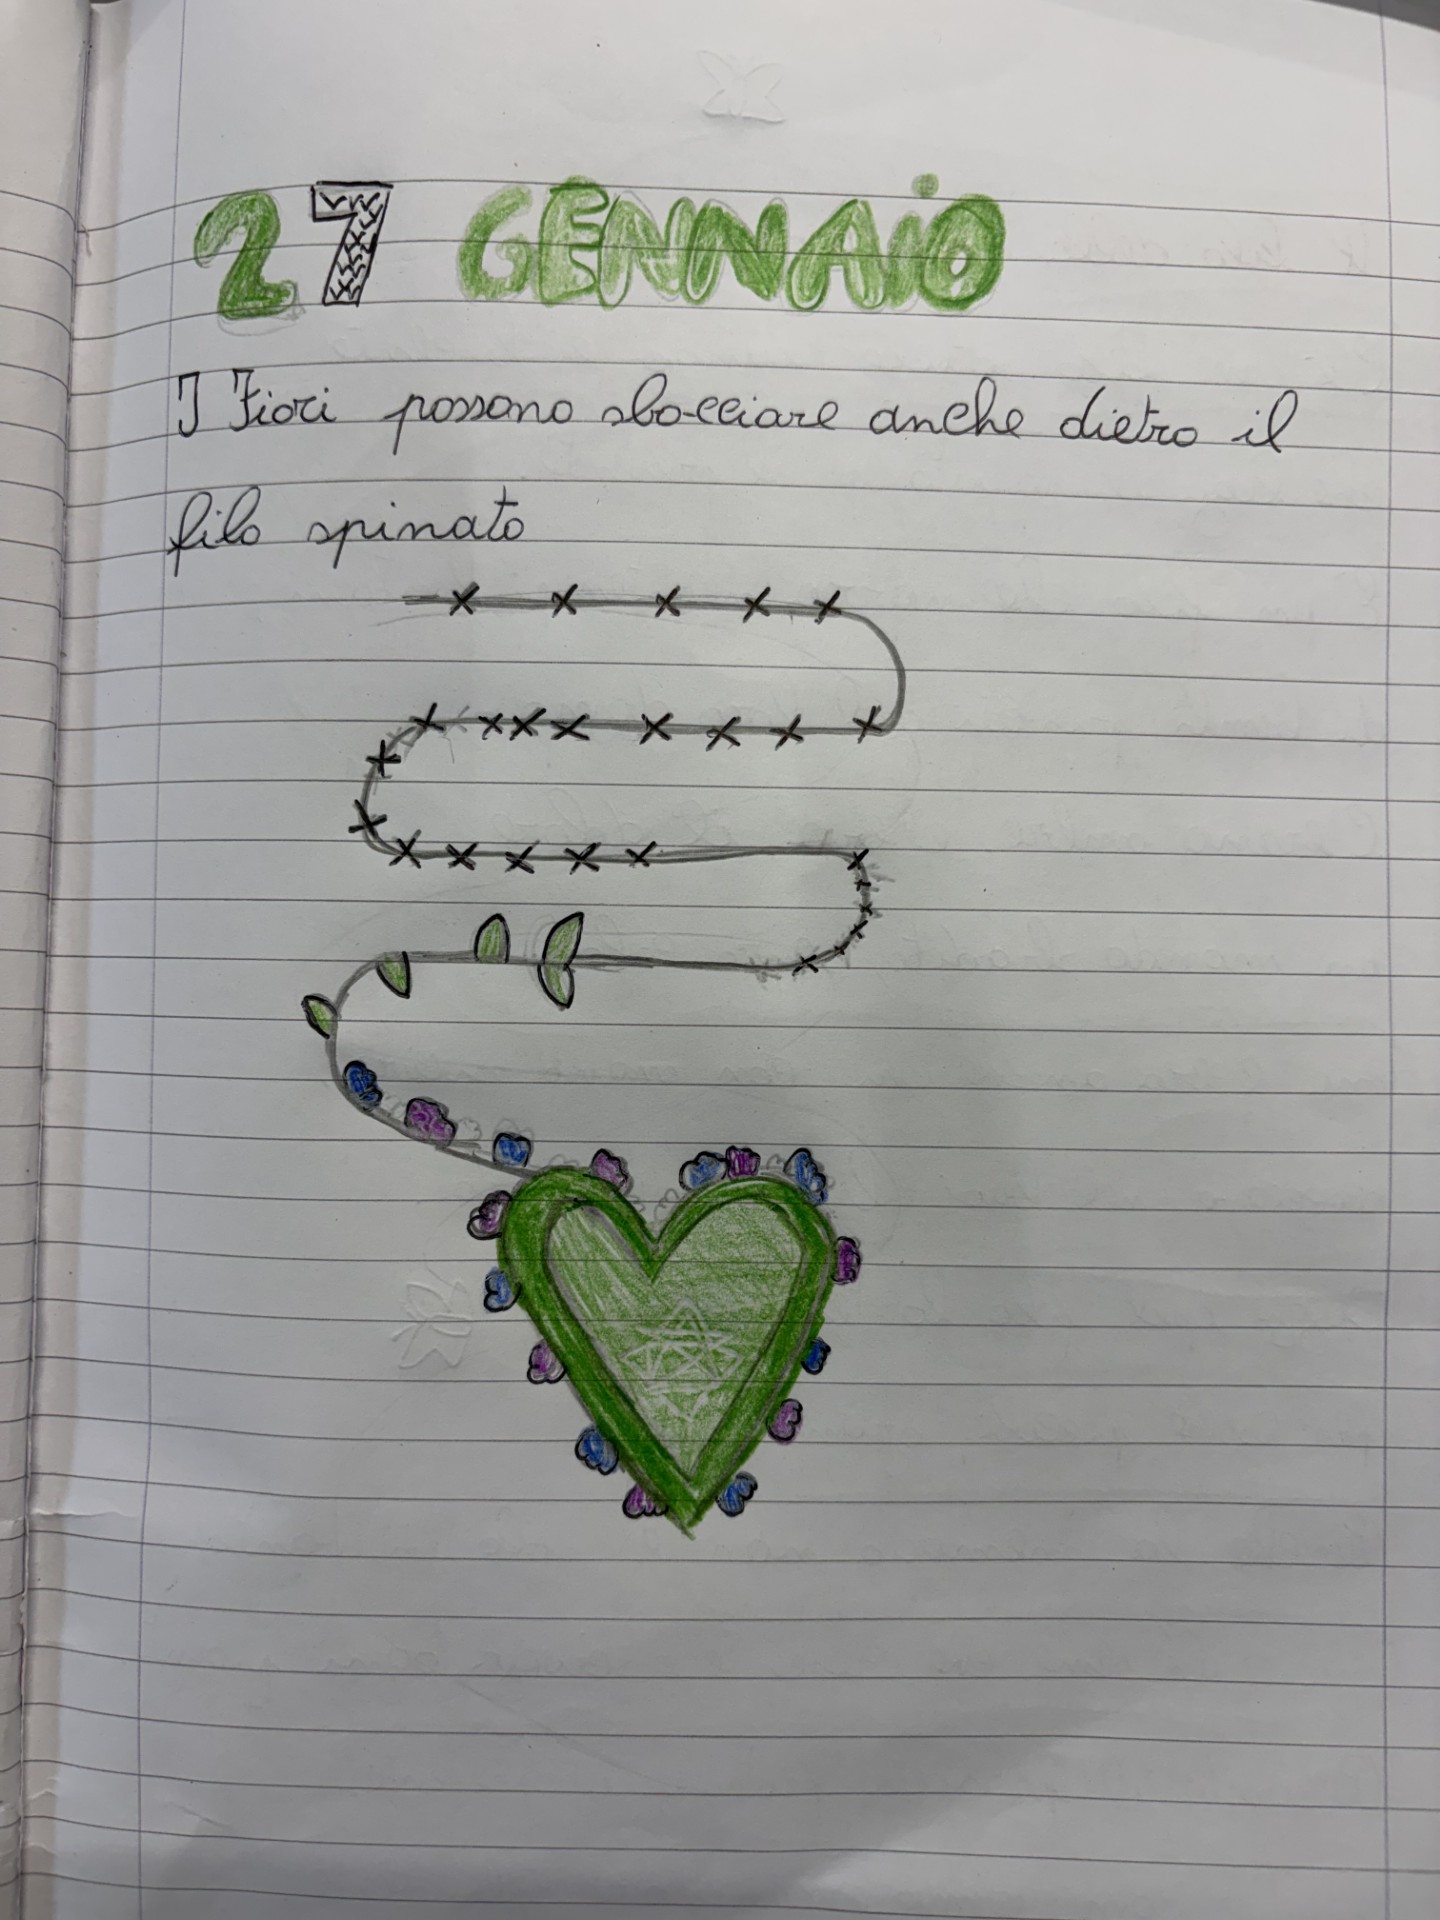 27 GENNAIO
I Fiori possono sbocciare anche dietro il
filo spinato